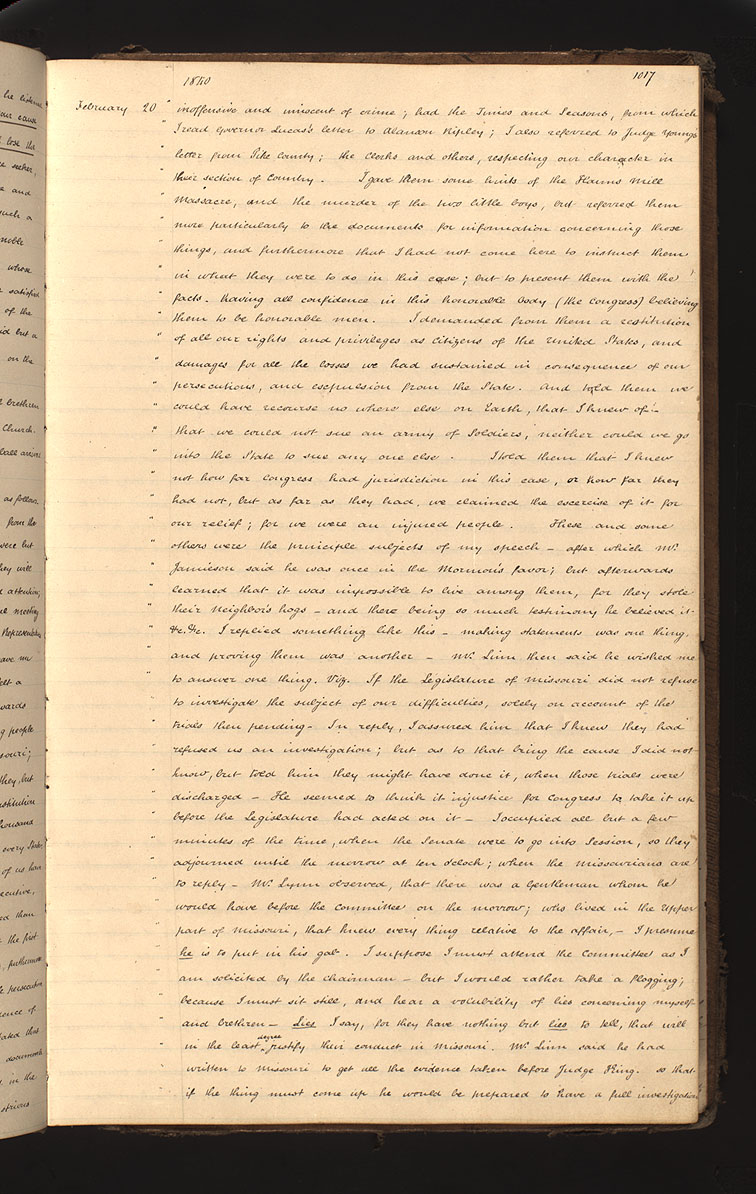 1840
1017
February 20 " inoffensive and innocent of crime; had the Times and Seasons, from which
" I read Governor Lucas's letter to Alanson Ripley; I also referred to Judge Young's
" letter from Pike County; the Clerks and others, respecting our character in
" their section of Country. I gave them some hints of the Hauns Mill
" Massacre, and the murder of the two little boys, but referred them
" more particularly to the documents for information concerning those
" things, and furthermore that I had not come here to instruct them
" in what they were to do in this case; but to present them with the
" facts. Having all confidence in this honorable body (the Congress) believing
" them to be honorable men. I demanded from them a restitution
" of all our rights and privileges as citizens of the United States, and
" damages for all the losses we had sustained in consequence of our
" persecutions, and expulsion from the State. And told them we
" could have recourse no where else on Earth, that I knew of:-
" that we could not sue an army of Soldiers, neither could we go
" into the State to sue any one else. I told them that I knew
" not how far Congress had jurisdiction in this case, or how far they
" had not, but as far as they had, we claimed the excercise of it for
" our relief; for we were an injured people. These and some
" others were the principle subjects of my speech – after which Mr.
" Jamieson said he was once in the Mormon's favor; but afterwards
" learned that it was impossible to live among them, for they stole
" their neighbor's hogs – and there being so much testimony he believed it
" &c. &c. I replied something like this – making statements was one thing,
" and proving them was another – Mr. Linn then said he wished me
" to answer one thing. Viz. If the Legislature of Missouri did not refuse
" to investigate the subject of our difficulties, solely on account of the
" trials then pending – In reply, I assured him that I knew they had
" refused us an investigation; but as to that being the cause I did not
" know, but told him they might have done it, when those trials were
" discharged – He seemed to think it injustice for Congress to take it up
" before the Legislature had acted on it – I occupied all but a few
" minutes of the time, when the Senate were to go into Session, so they
" adjourned until the morrow at ten o'clock; when the Missourians are
" to reply – Mr. Lynn observed, that there was a Gentleman whom he
" would have before the committee on the morrow; who lived in the Upper
" part of Missouri, that knew every thing relative to the affair, – I presume
" he is to put in his gab. I suppose I must attend the Committee as I
" am solicited by the chairman – but I would rather take a flogging;
" because I must sit still, and hear a volubility of lies concerning myself
" and brethren – Lies I say, for they have nothing but lies to tell, that will
" in the least degree justify their conduct in Missouri. Mr. Linn said he had
" written to Missouri to get all the evidence taken before Judge King. so that
" if the thing must come up he would be prepared to have a full investigation